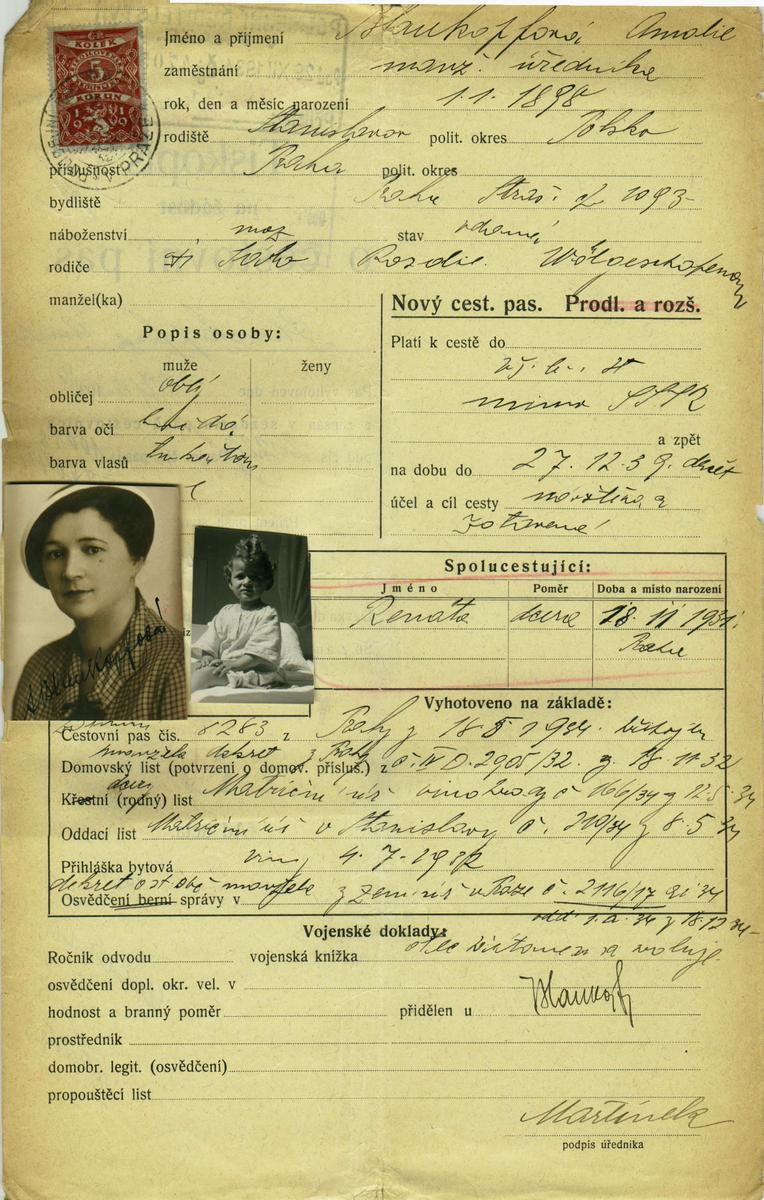 KOLEK
5
KORUN
PRAZE
Jméno a příjmení Blaukopfová Amalie
zaměstnání manž. úředníka
rok, den a měsíc narození 1.1. 1898
rodiště Stanislavov polit. okres Polsko
příslušnost Praha polit. okres
bydliště Praha Straš. 1093
náboženství moz stav vdaná
rodiče
manžel(ka)
Nový cest. pas. Prodl. a rozš.
Popis osoby:
muže ženy
obličej oblý
barva očí hnědá
barva vlasů
Platí k cestě do
mimo SSSR
a zpět
na dobu do 27. 12. 39.
účel a cíl cesty návštěva a
zotavení
Spolucestující:
Jméno Poměr Doba a místo narození
Renáta dcera 18. 11 1931
Praha
Blaukopfová
Vyhotoveno na základě:
Cestovní pas čís. 8283 z Prahy z 18 5 1934
manžela dekret z Prahy
Domovský list (potvrzení o domov. přísluš.) z č. IV D. 2905/32 z 18. 11. 32
dcery
Křestní (rodný) list Matriční úř. vinohrady č 166/34 z 12. 5. 34
Oddací list Matriční úř v Stanislavy č. 210/34 z 8. 5 34
Přihláška bytová 4. 7. 1932
dekret manžela z zem. úř. v Praze č. 2116/17 ai 34
Osvědčení berní správy v
odd 1.a. 34 z 18. 12 34
Vojenské doklady:
Ročník odvodu vojenská knížka
otec
osvědčení dopl. okr. vel. v
hodnost a branný poměr přidělen u Blaukopf
prostředník
domobr. legit. (osvědčení)
propouštěcí list
Martínek
podpis úředníka